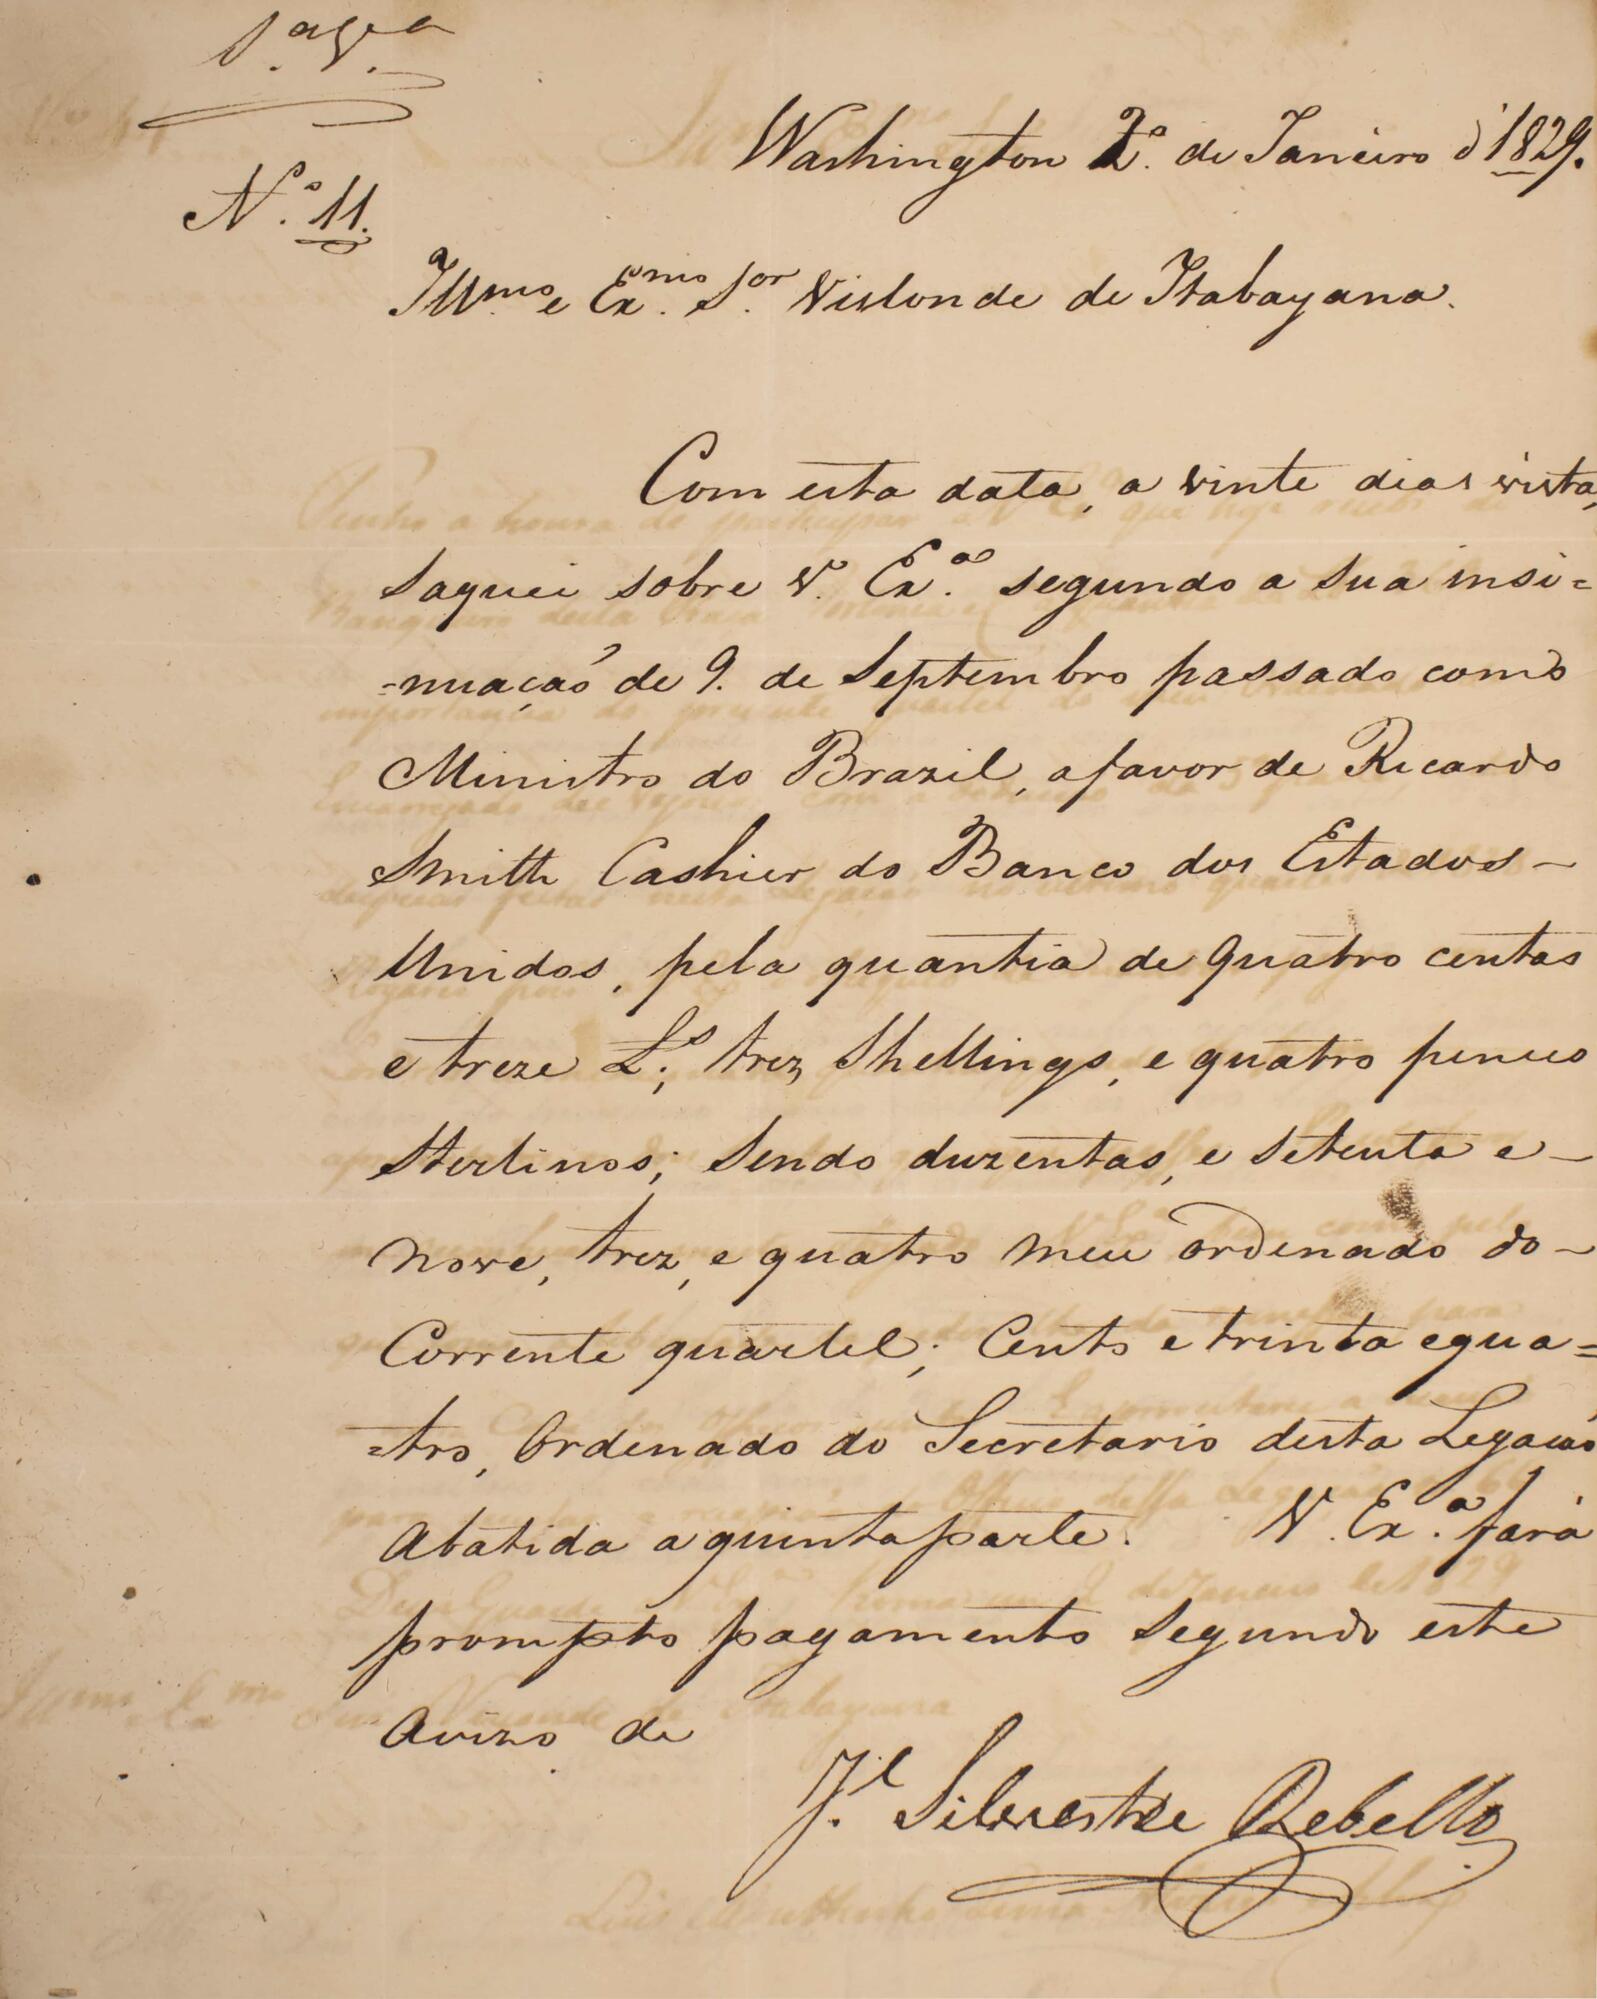 1.ª v.ª
Nº. 11.
Washington 2º. de Janeiro d' 1829.
Illmo. e Exmo. Sor. Visconde de Itabayana.
Com esta data, a vinte dias vista,
Saquei sobre V. Exª. segundo a sua insi=
=nuaçaõ de 9. de Septembro passado como
Ministro do Brazil, a favor de Ricardo
Smith Cashier do Banco dos Estados-
Unidos, pela quantia de quatro centas
e treze £s; trez Shellings, e quatro pences
Sterlinos; Sendo duzentas, e setenta e-
nove, trez, e quatro meu ordenado do-
Corrente quartel; Cento e trinta e qua=
=tro, Ordenado do Secretario desta Legacaõ
Abatida a quinta parte. V. Exª. fará
prompto pagamento segundo este
Avizo de
Jl. Silvestre Rebello